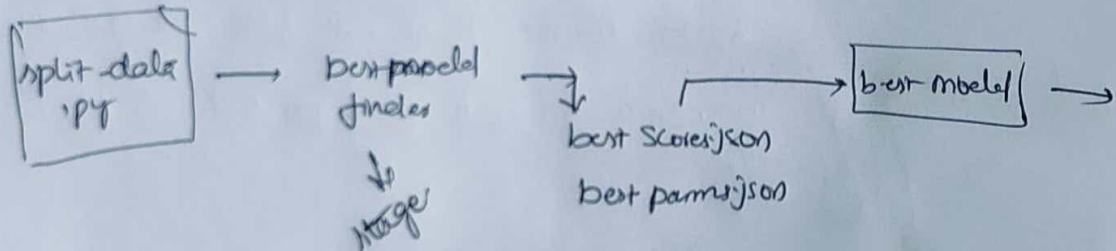 split-data
.py
best model
finder
stage
best scores.json
best params.json
best model